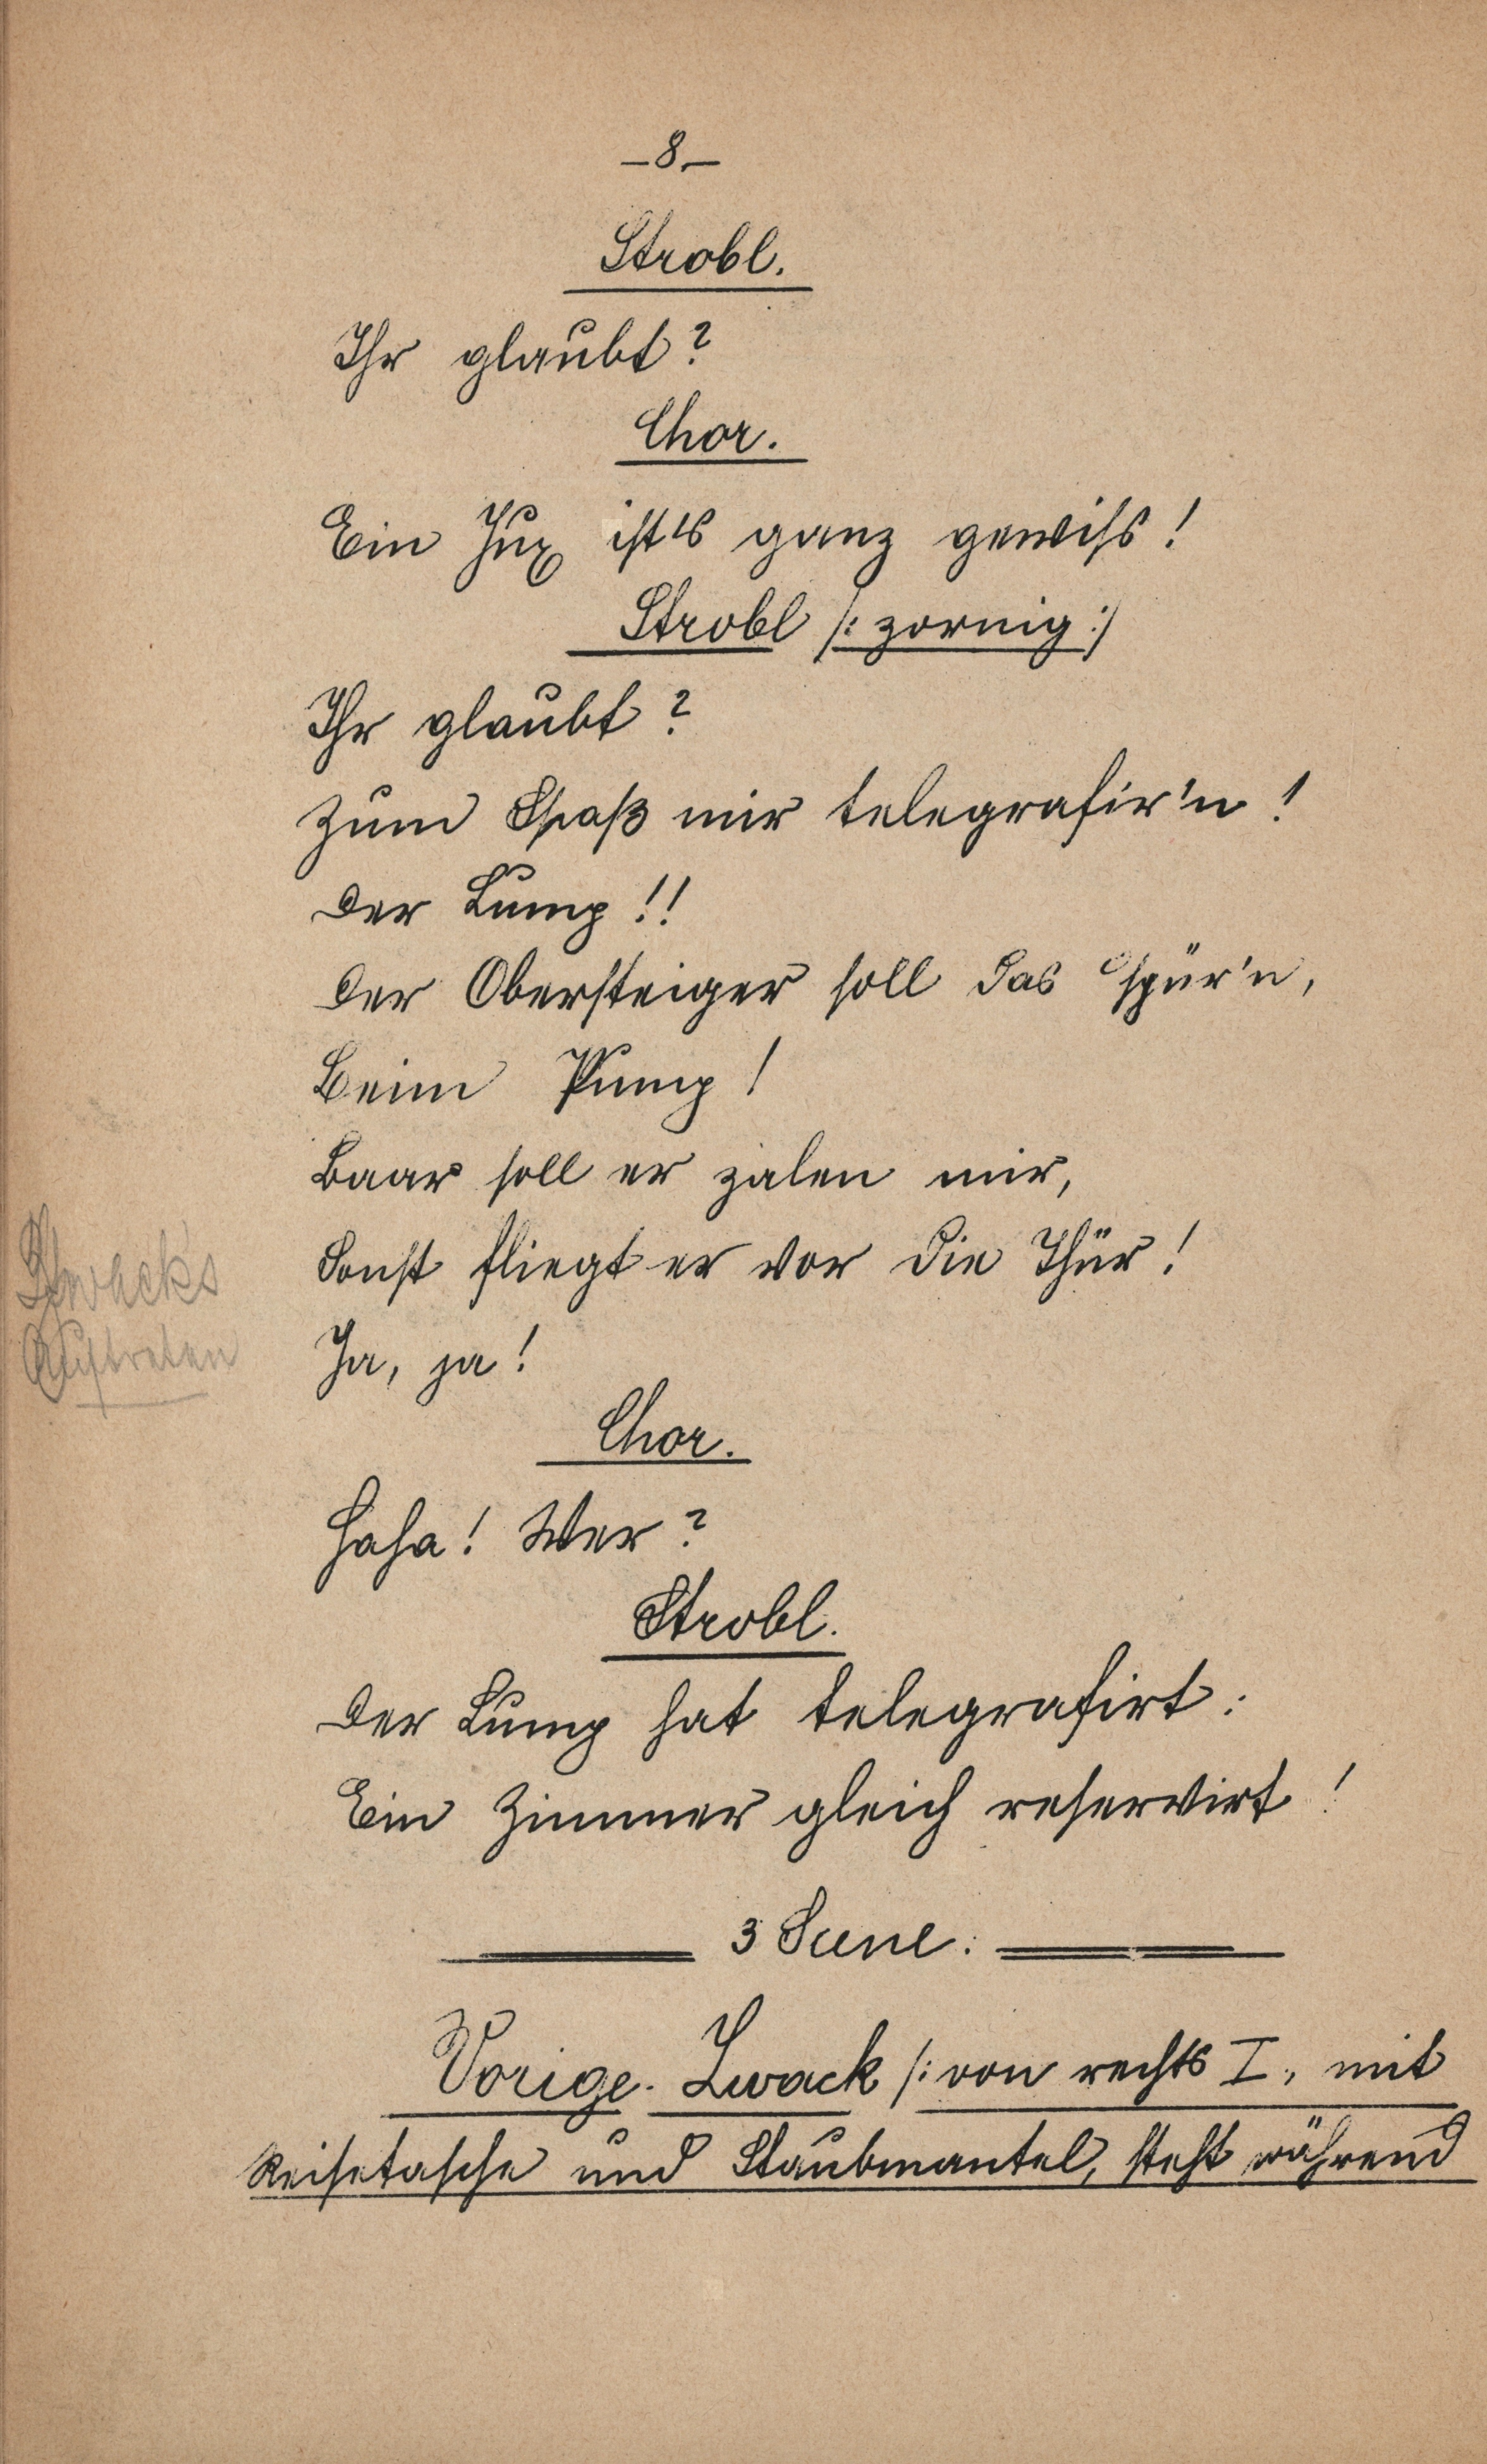 –8–
Strobl.
Ihr glaubt?
Chor.
Ein Jux ist's ganz gewiss!
Strobl /: zornig :/
Ihr glaubt?
Zum Spaß mir telegrafir'n!
Der Lump!!
Der Obersteiger soll das spür'n,
Beim Pump!
Baar soll er zalen mir,
Sonst fliegt er vor die Thür!
Zwack's
Auftreten
Ja, ja!
Chor.
Haha! Wer?
Strobl.
Der Lump hat telegrafirt:
Ein Zimmer gleich reservirt!
3 Scene.
Vorige. Zwack /: von rechts I, mit
Reisetasche und Staubmantel, steht während